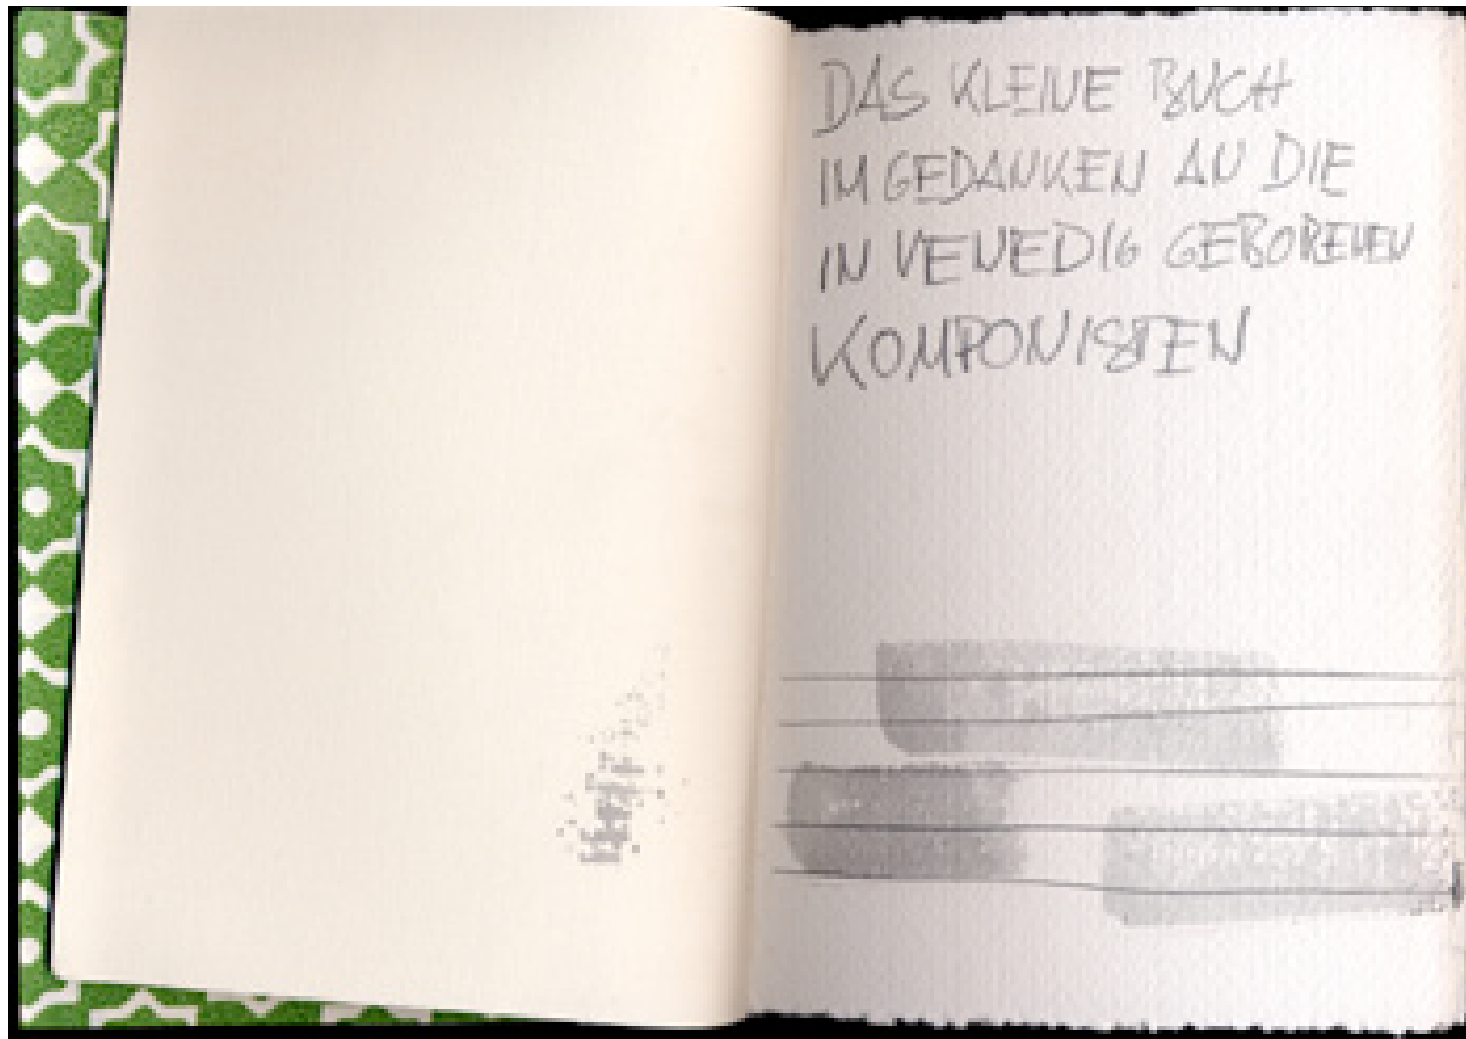 DAS KLEINE BUCH
IM GEDANKEN AN DIE
IN VENEDIG GEBORENEN
KOMPONISTEN